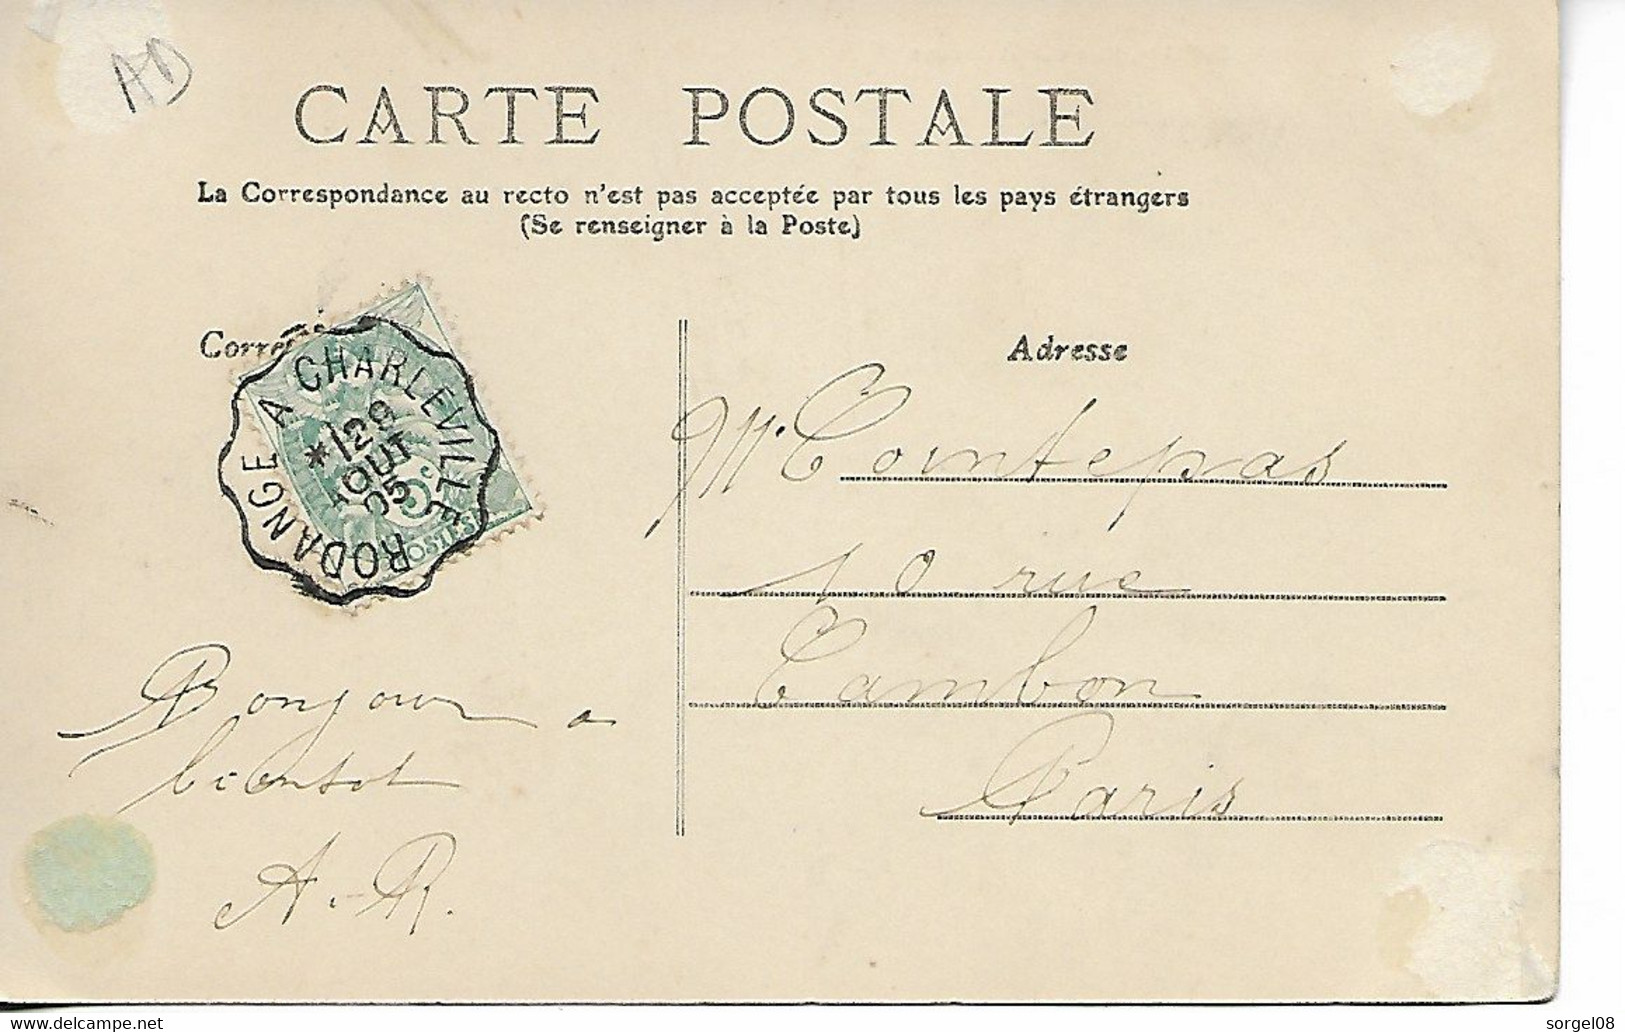 AD
CARTE POSTALE
La Correspondance au recto n'est pas acceptée par tous les pays étrangers
(Se renseigner à la Poste)
Corre
Adresse
RODANGE A CHARLEVILLE
AOUT
05
5c
POSTES
M. Cointepas
10 rue
Cambon
Paris
Bonjour a
bientot
A.-R.
delcampe.net
sorgel08